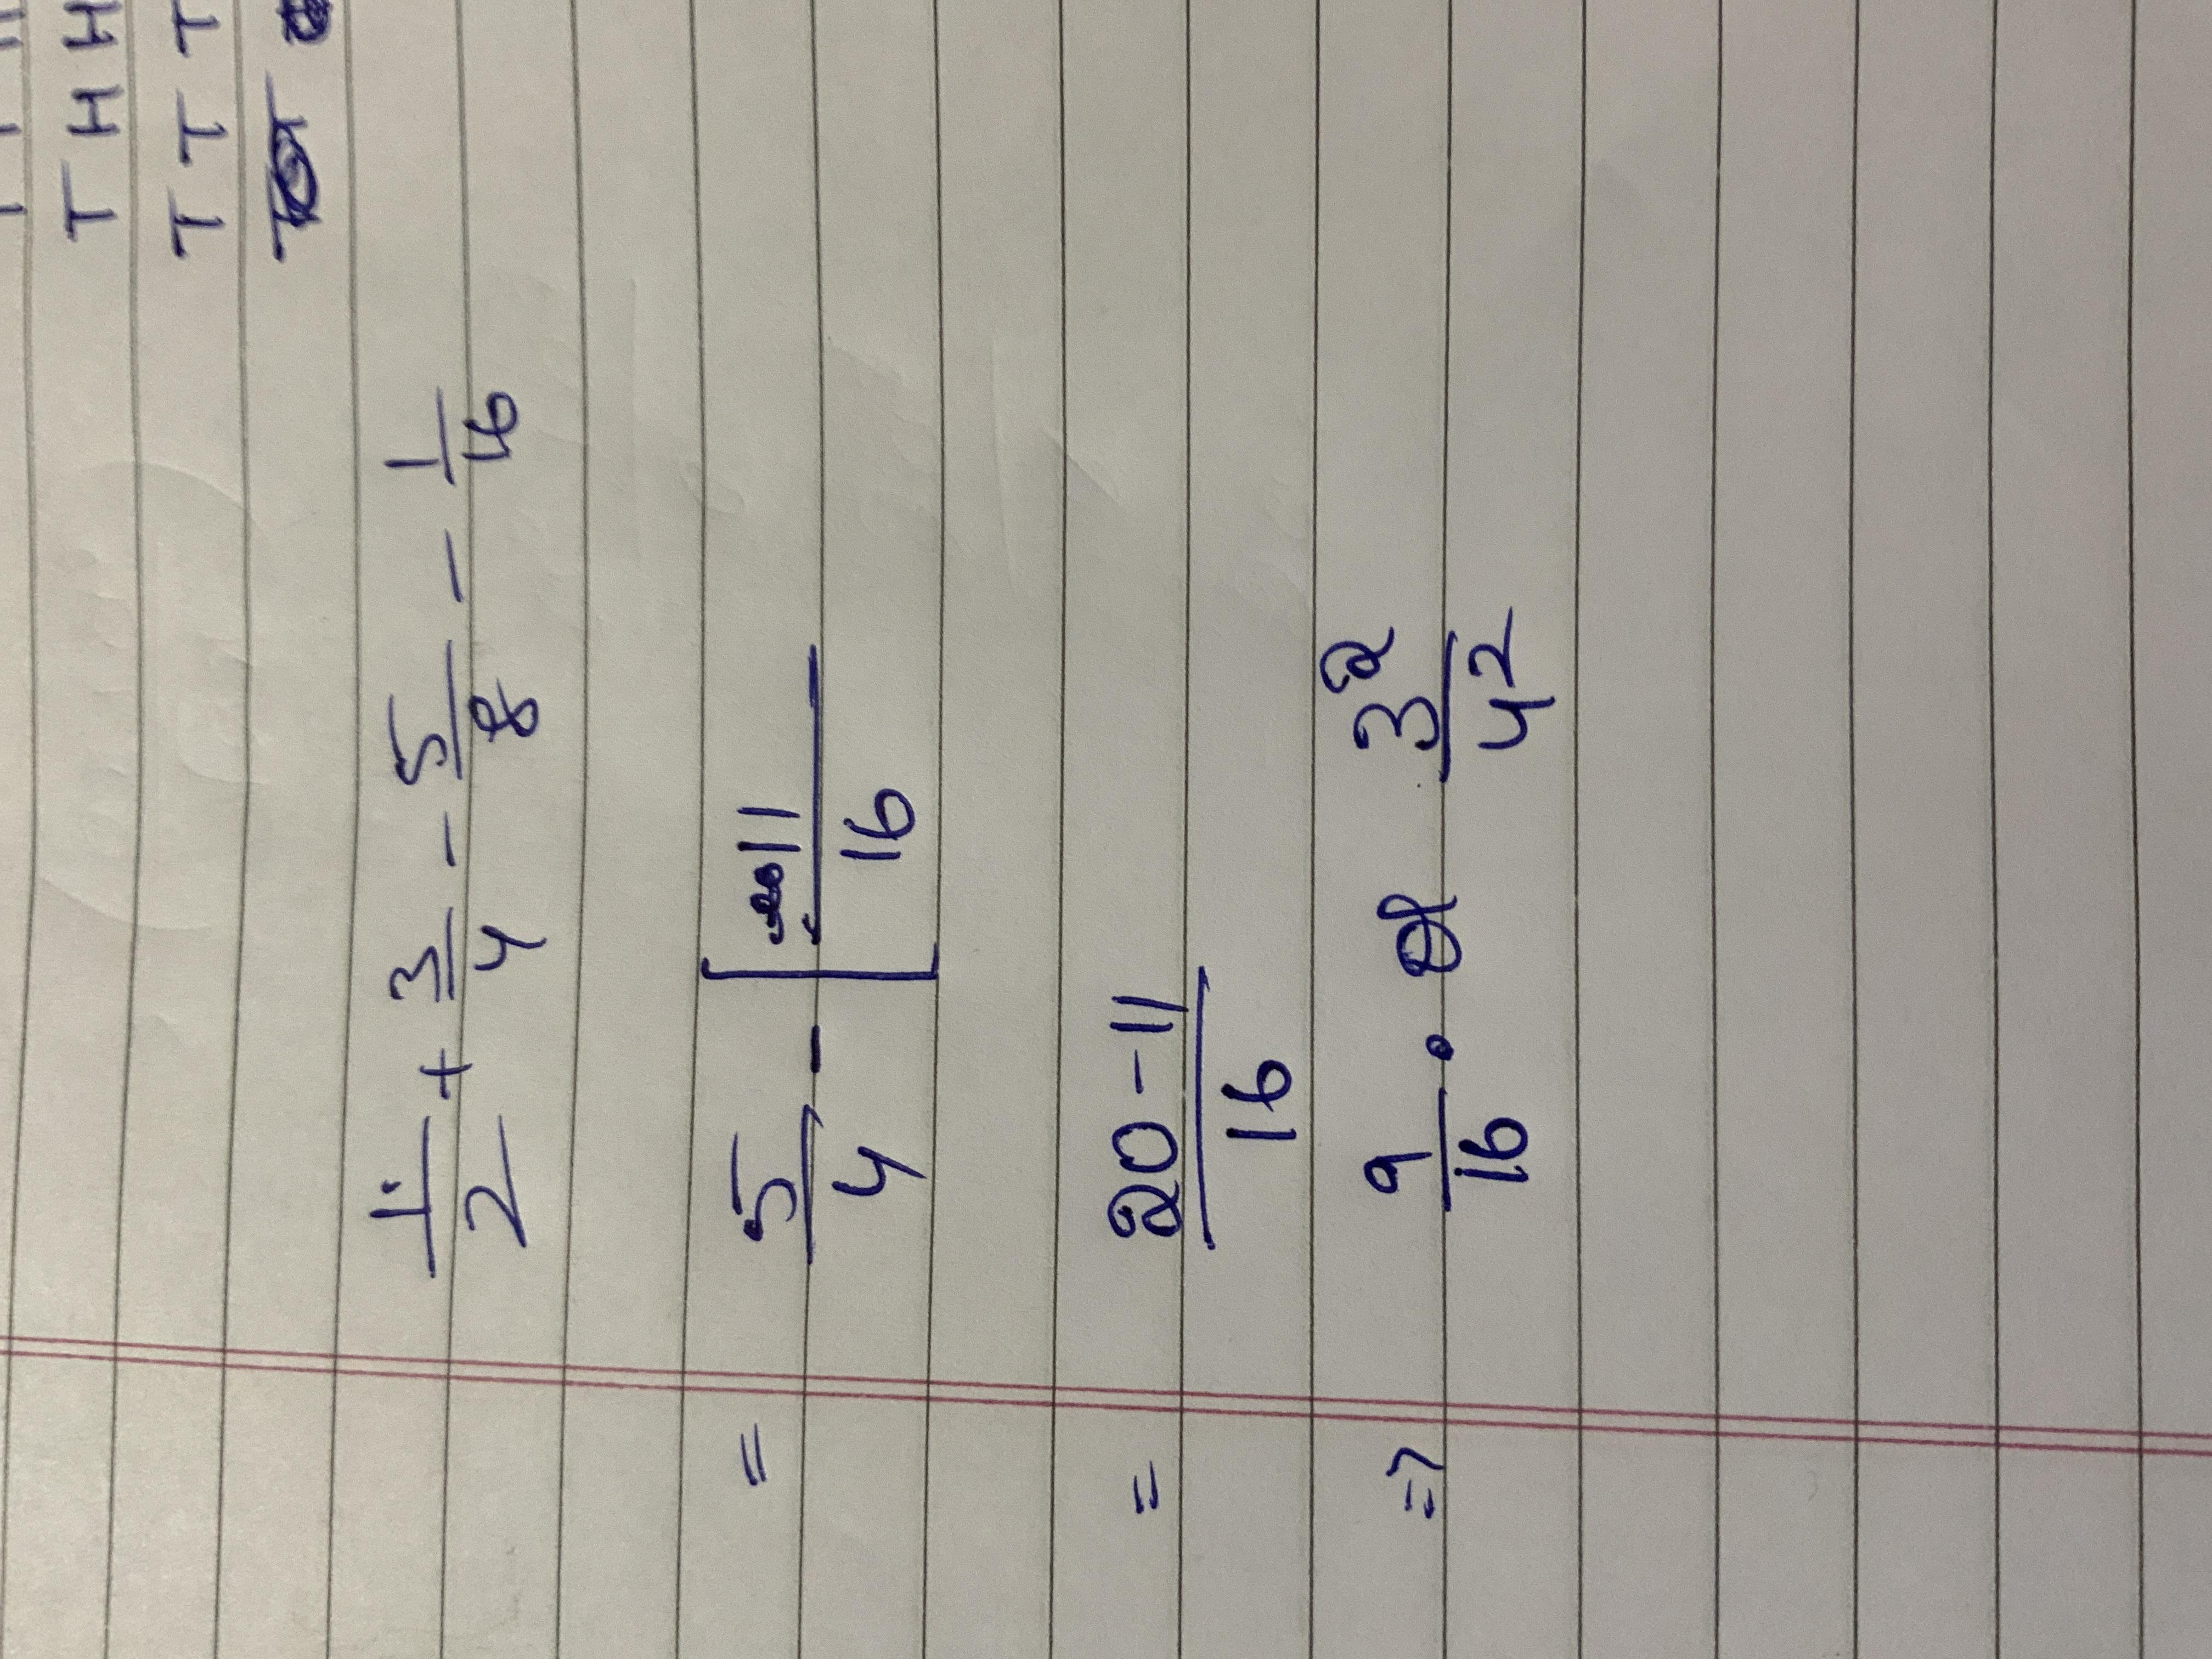 T H H
T T T
1/2 + 3/4 - 5/8 - 1/16
= 5/4 - [11/16
= 20-11/16
=> 9/16 . or 3^2/4^2